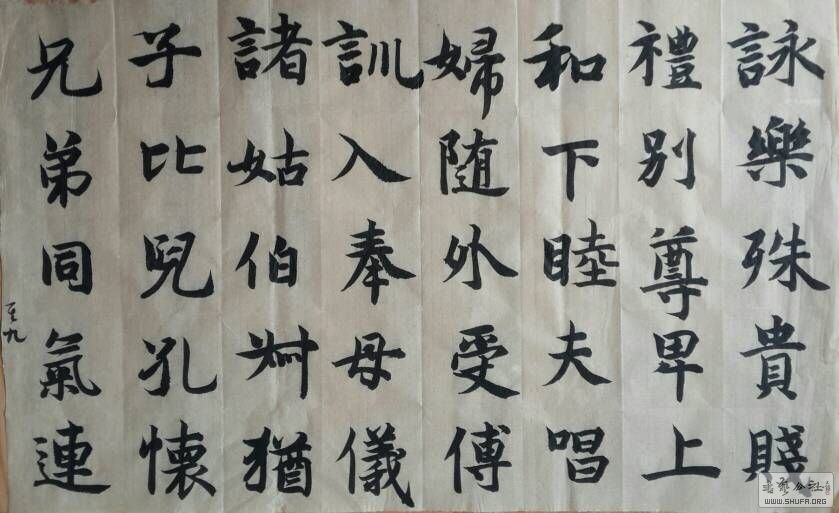 詠樂殊貴賤
禮別尊卑上
和下睦夫唱
婦随外受傅
訓入奉母儀
諸姑伯叔猶
子比兒孔懐
兄弟同氣連
WWW.SHUFA.ORG